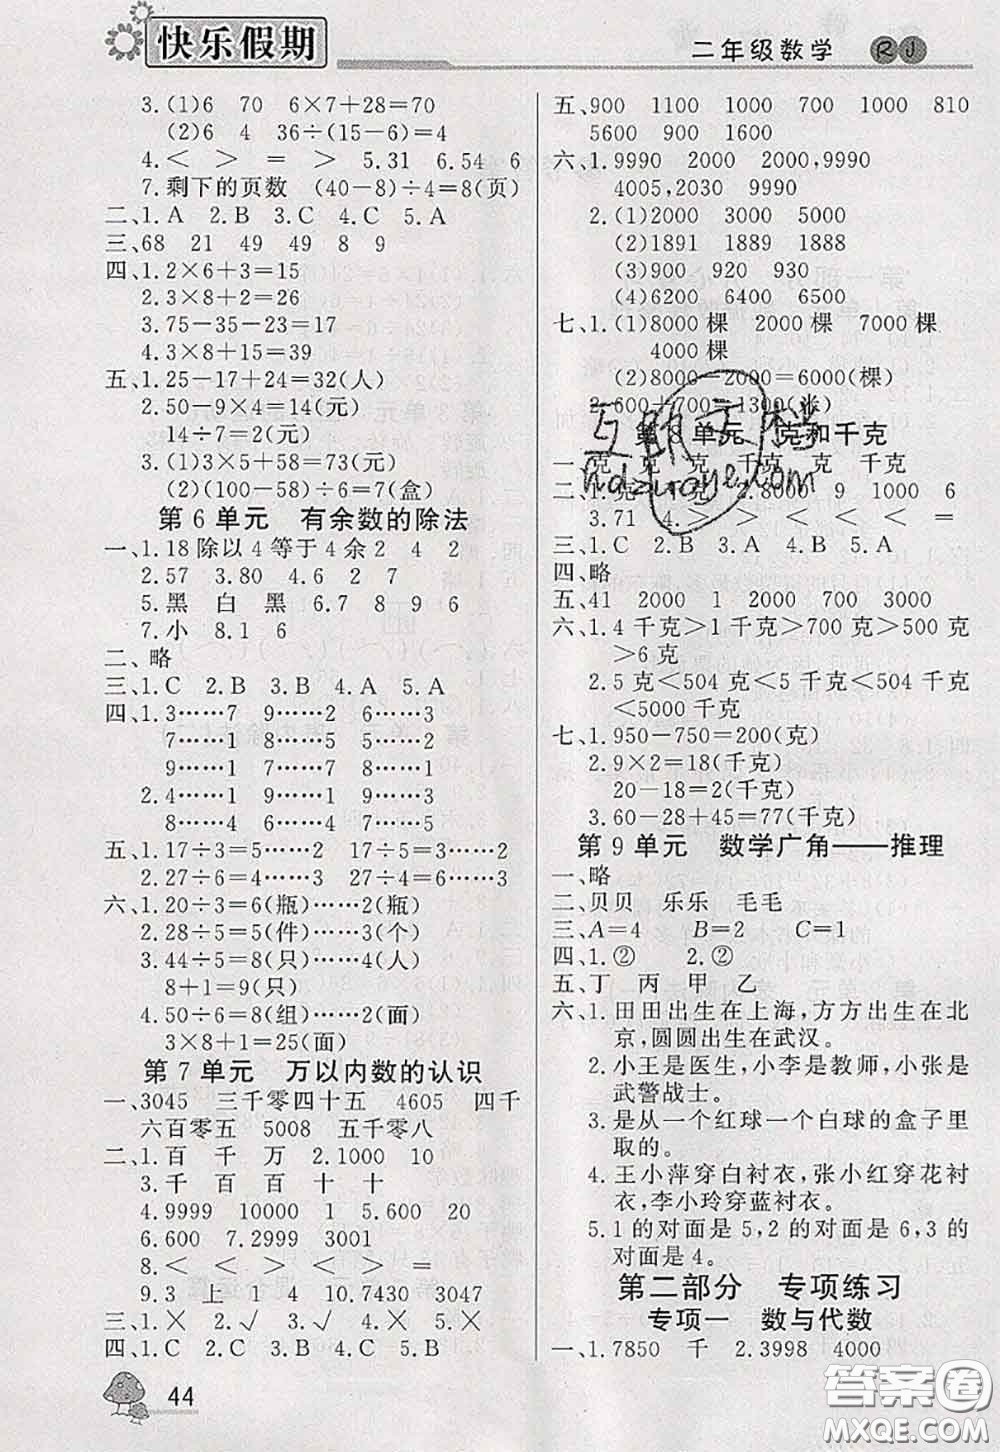 快乐假期
二年级数学 RJ
3.(1)6 70 6×7+28=70
(2)6 4 36÷(15-6)=4
4.< > = > 5.31 6.54 6
7.剩下的页数 (40-8)÷4=8(页)
二、1.A 2.B 3.C 4.C 5.A
三、68 21 49 49 8 9
四、1.2×6+3=15
2.8×2+2=26
3.75-35-23=17
4.3×8+15=39
五、1.25-17+24=32(人)
2.50-9×4=14(元)
14÷7=2(元)
3.(1)3×5+58=73(元)
(2)(100-58)÷6=7(盒)
第6单元 有余数的除法
一、1.18除以4等于4余2 4 2
2.57 3.80 4.6 2 7
5.黑 白 黑 6.7 8 9 6
7.小 8.1 6
二、略
三、1.C 2.B 3.B 4.A 5.A
四、1.3……7 9……2 6……3
7……1 8……5 5……2
9……1 9……1 9……3
2.4……1 1……1 9……3
8……4 6……4 7……5
五、1.17÷3=5……2 17÷5=3……2
2.27÷5=5……2 27÷5=5……2
六、1.20÷3=6(瓶)……2(瓶)
2.28÷5=5(件)……3(个)
3.44÷5=8(只)……4(人)
8+1=9(只)
4.50÷6=8(组)……2(面)
3×8+1=25(面)
第7单元 万以内数的认识
一、3045 三千零四十五 4605 四千
六百零五 5008 五千零八
二、1.百 千 万 2.1000 10
3.千 百 百 十 十
4.9999 10000 1 5.600 20
6.600 7.2999 3001
8.< < > < > =
9.3 上 1 4 10.7430 3047
三、1.× 2.√ 3.√ 4.× 5.×
四、1.C 2.C 3.B 4.C 5.B
44
五、900 1100 1000 700 1000 810
5600 900 1600
六、1.9990 2000 2000,9990
4005,2030 9990
2.(1)2000 3000 5000
(2)1891 1889 1888
(3)900 920 930
(4)6200 6400 6500
七、1.(1)8000棵 2000棵 7000棵
4000棵
(2)8000-2000=6000(棵)
2.600+700=1300(米)
第8单元 克和千克
一、克 克 克 千克 克 千克
二、1.克 克 2.8000 9 1000 6
3.71 4.> > < < < =
三、1.C 2.B 3.A 4.B 5.C
四、略
五、41 2000 1 2000 700 3000
六、1.4千克>1千克>700克>500克
>6克
2.5克<504克<5千克<504千克
<5000千克
七、1.950-750=200(克)
2.9×2=18(千克)
20-18=2(千克)
3.60-28+45=77(千克)
第9单元 数学广角——推理
一、略
二、贝贝 乐乐 毛毛
三、A=4 B=2 C=1
四、1.② 2.②
五、丁 丙 甲 乙
六、1.田田出生在上海,方方出生在北
京,圆圆出生在武汉。
2.小王是医生,小李是教师,小张是
武警战士。
3.是从一个红球一个白球的盒子里
取的。
4.王小萍穿白衬衣,张小红穿花衬
衣,李小玲穿蓝衬衣。
5.1的对面是5,2的对面是6,3的
对面是4。
第二部分 专项练习
专项一 数与代数
一、1.7850 千 2.3998 4000
答案圈
MXQE.COM